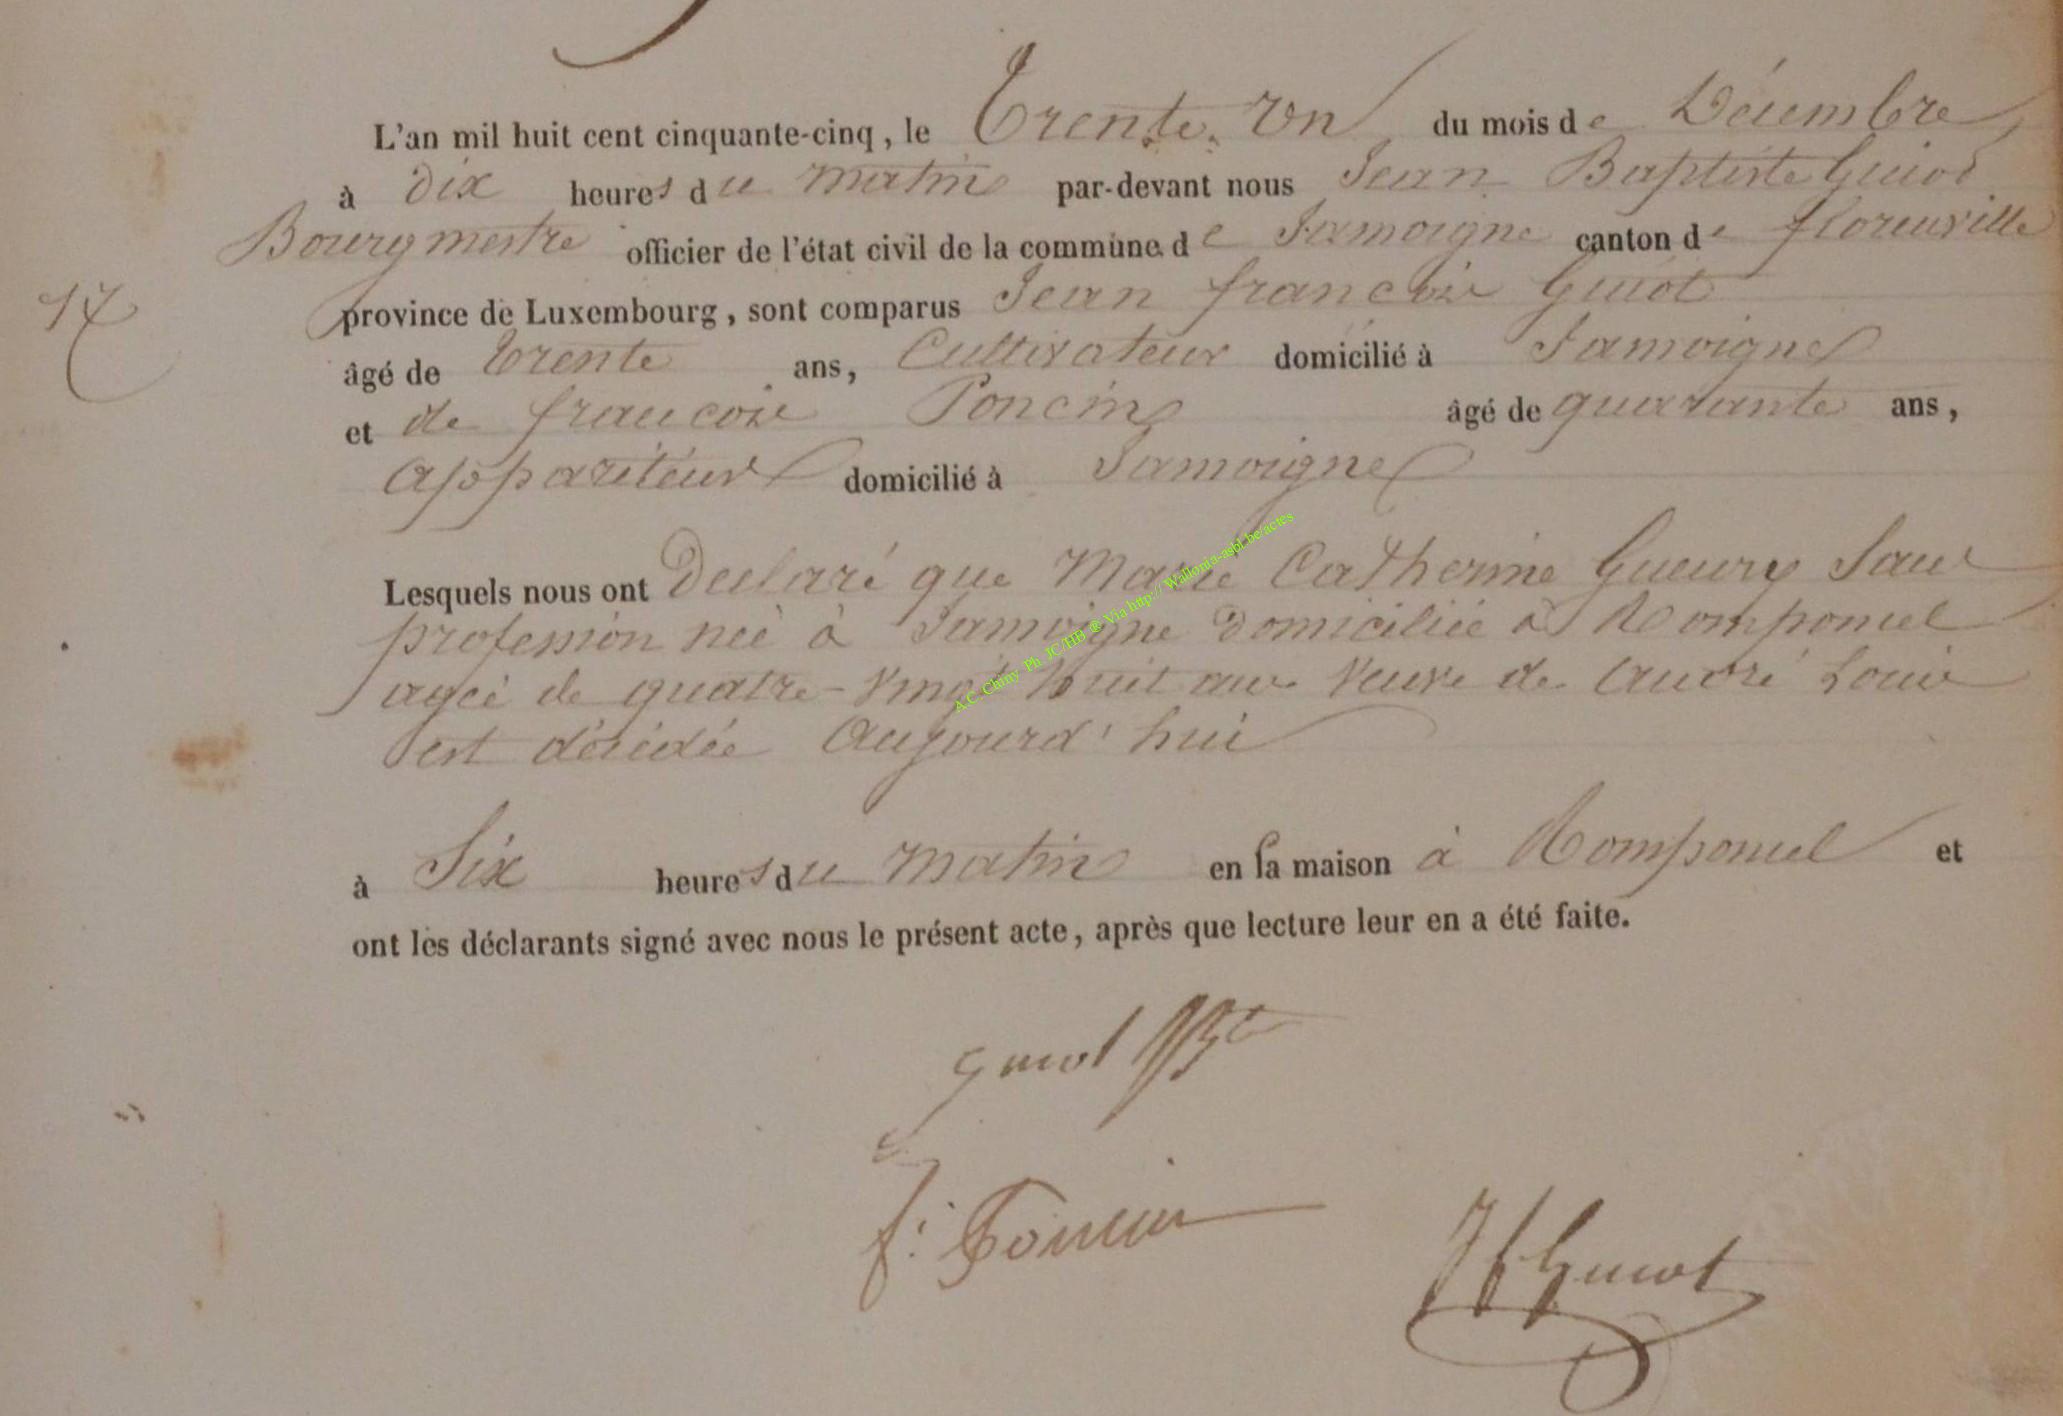 L'an mil huit cent cinquante-cinq, le Trente Un du mois de Décembre
à dix heures du matin par-devant nous Jean Baptiste Guiot
Bourgmestre officier de l'état civil de la commune de Jamoigne canton de florenville
17
province de Luxembourg, sont comparus Jean francois Guiot
âgé de trente ans, Cultivateur domicilié à Jamoigne
et de francois Poncin âgé de quarante ans,
Appariteur domicilié à Jamoigne
Lesquels nous ont Declaré que Marie Catherine Gueury Sans
profession née à Jamoigne domiciliée à Romponcel
agée de quatre-vingt huit ans Veuve de André Louis
est décédée Aujourd'hui
à Six heures du matin en sa maison à Romponcel et
ont les déclarants signé avec nous le présent acte, après que lecture leur en a été faite.
guiot
f. Poncin
J f Guiot
A.C. Chiny Ph. JC/HB ® Via http://Wallonia-asbl.be/actes